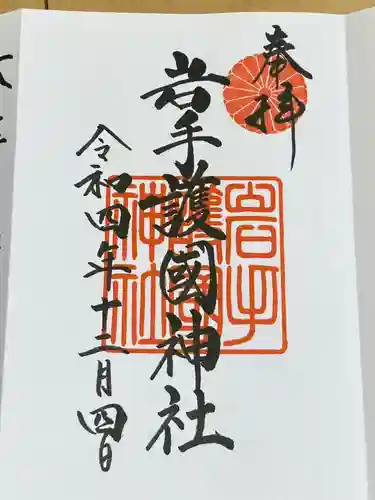 奉拝
岩手護國神社
岩手
護國
神社
令和四年十二月四日